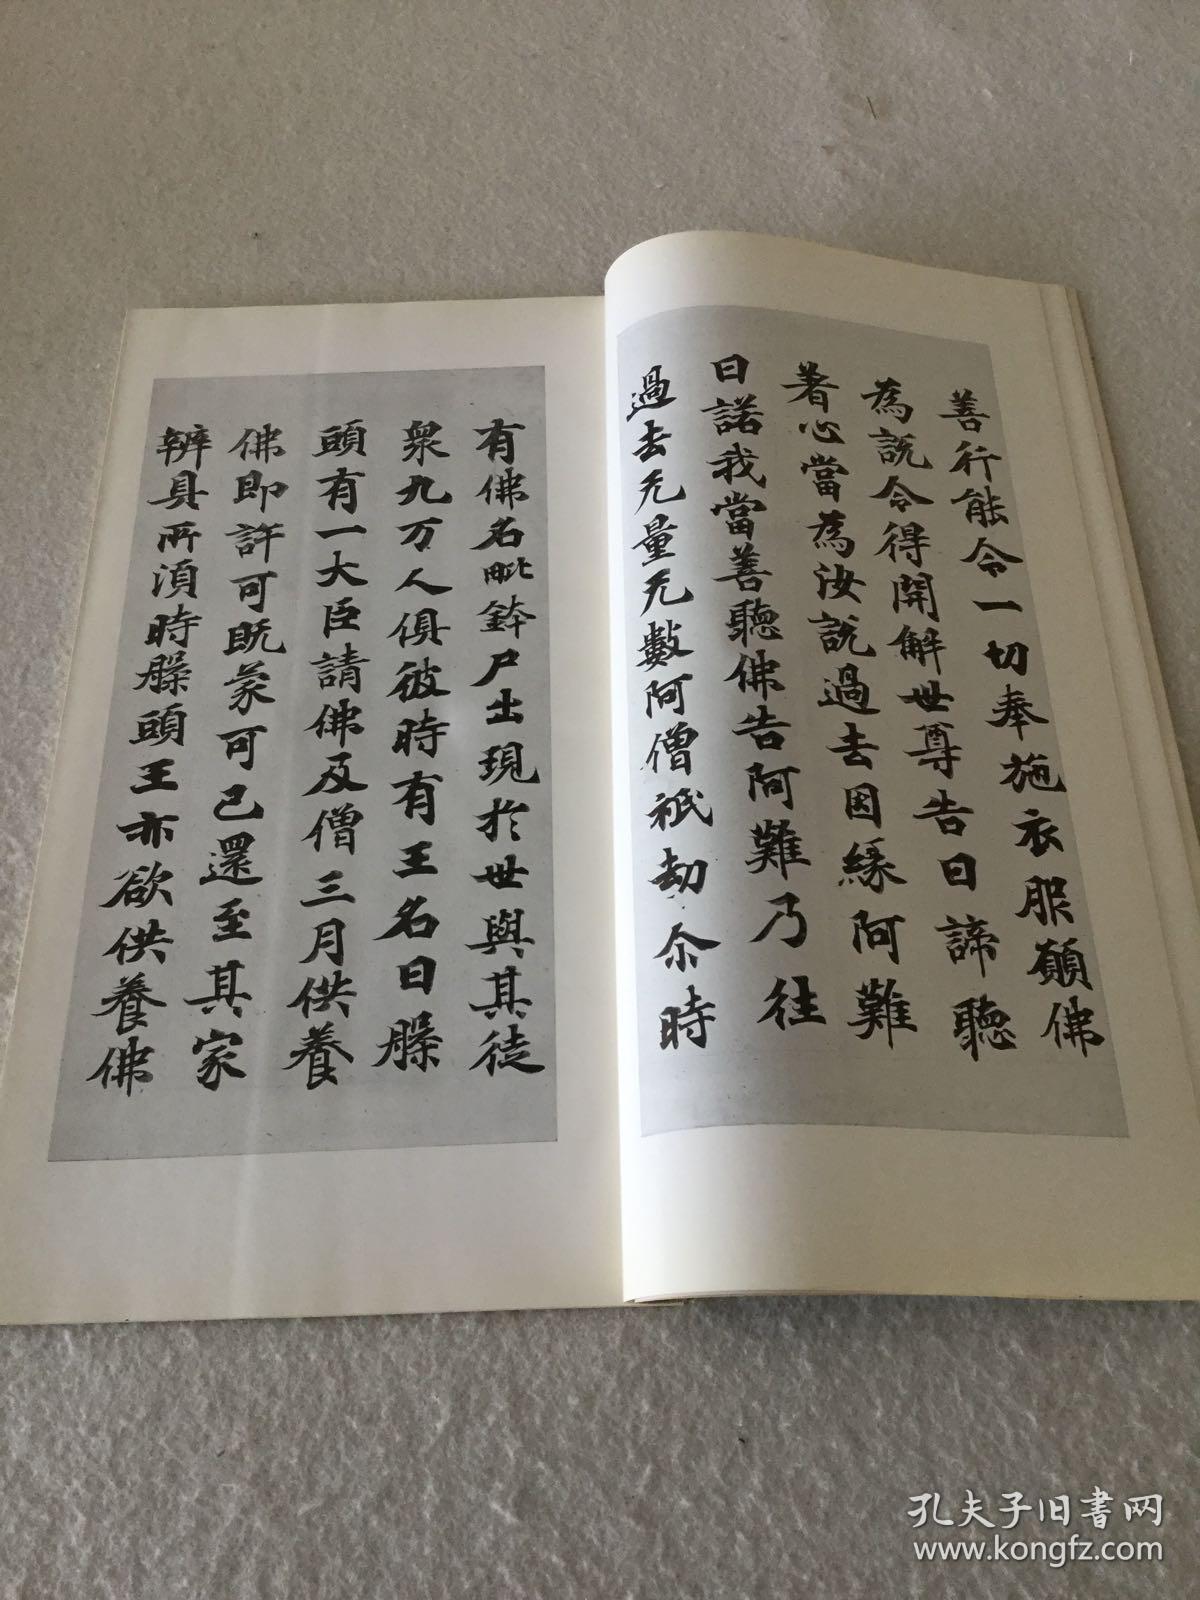 善行能令一切奉施衣服願佛
為説令得開解世尊告曰諦聽
著心當為汝説過去因緣阿難
曰諾我當善聽佛告阿難乃往
過去无量无數阿僧祇劫尒時
有佛名毗鉢尸出現於世與其徒
衆九万人俱彼時有王名曰槃
頭有一大臣請佛及僧三月供養
佛即許可既蒙可已還至其家
辨具所湏時槃頭王亦欲供養佛
孔夫子旧书网
www.kongfz.com